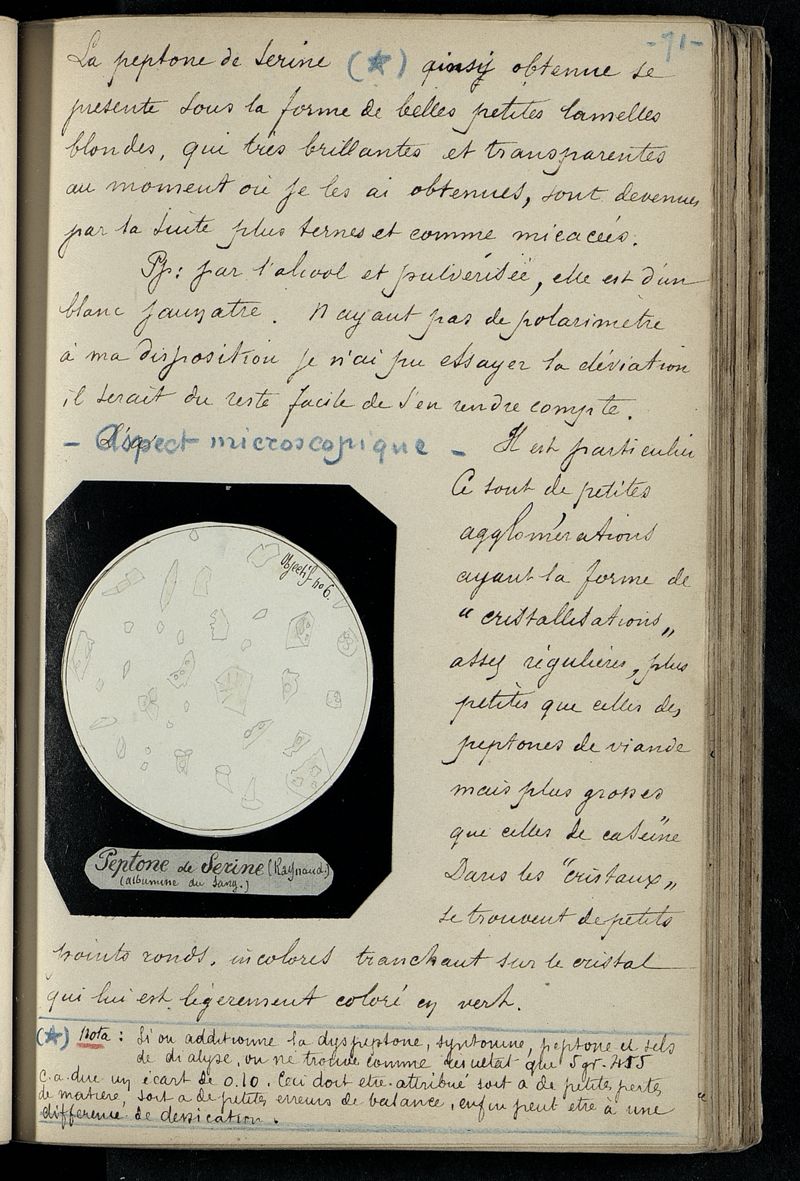 -71-
La peptone de Serine (★) ainsy obtenue se
presente sous la forme de belles petites lamelles
blondes, qui très brillantes et transparentes
au moment où je les ai obtenues, sont devenues
par la suite plus ternes et comme micacées.
Pp: par l'alcool et pulvérisée, elle est d'un
blanc jaunatre. N'ayant pas de polarimètre
à ma disposition je n'ai pu essayer la déviation
il serait du reste facile de s'en rendre compte.
- Aspect microscopique - Il est particulier
Ce sont de petites
agglomérations
ayant la forme de
"cristallisations"
assez régulières, plus
petites que celles des
peptones de viande
mais plus grosses
que celles de caséine
Dans les "cristaux"
se trouvent de petits
points ronds, incolores tranchant sur le cristal
qui lui est légerement coloré en vert.
Objectif no 6.
Peptone de Serine (Raynaud.)
(albumine du sang.)
(★) Nota : Si on additionne la dyspeptone, syntonine, peptone et sels
de dialyse, on ne trouve comme resultat que 5gr.455
C.a.due un écart de 0.10. Ceci doit etre attribué soit a de petites pertes
de matière, soit a de petites erreurs de balance, enfin peut etre à une
difference de dessication.